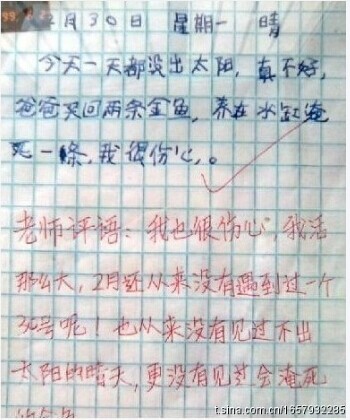 月30日 星期一 晴
今天一天都没出太阳，真不好，
爸爸买回两条金鱼，养在水缸淹
死一條，我很伤心。
老师评语：我也很伤心，我活
那么大，2月还从来没有遇到过一个
30号呢！也从来没有见过不出
太阳的晴天，更没有见过会淹死
的金鱼
t.sina.com.cn/1657932285